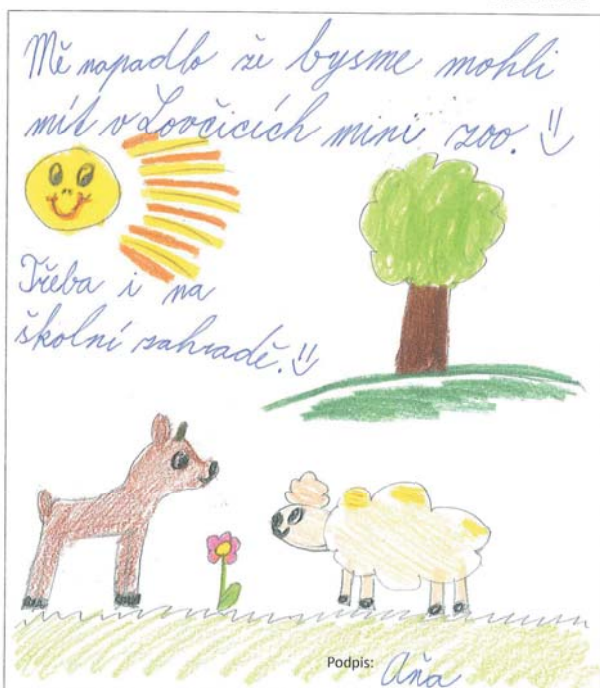 Mě napadlo že bysme mohli
mít v Lovčicích mini zoo.
Třeba i na
školní zahradě.
Podpis: Aňa